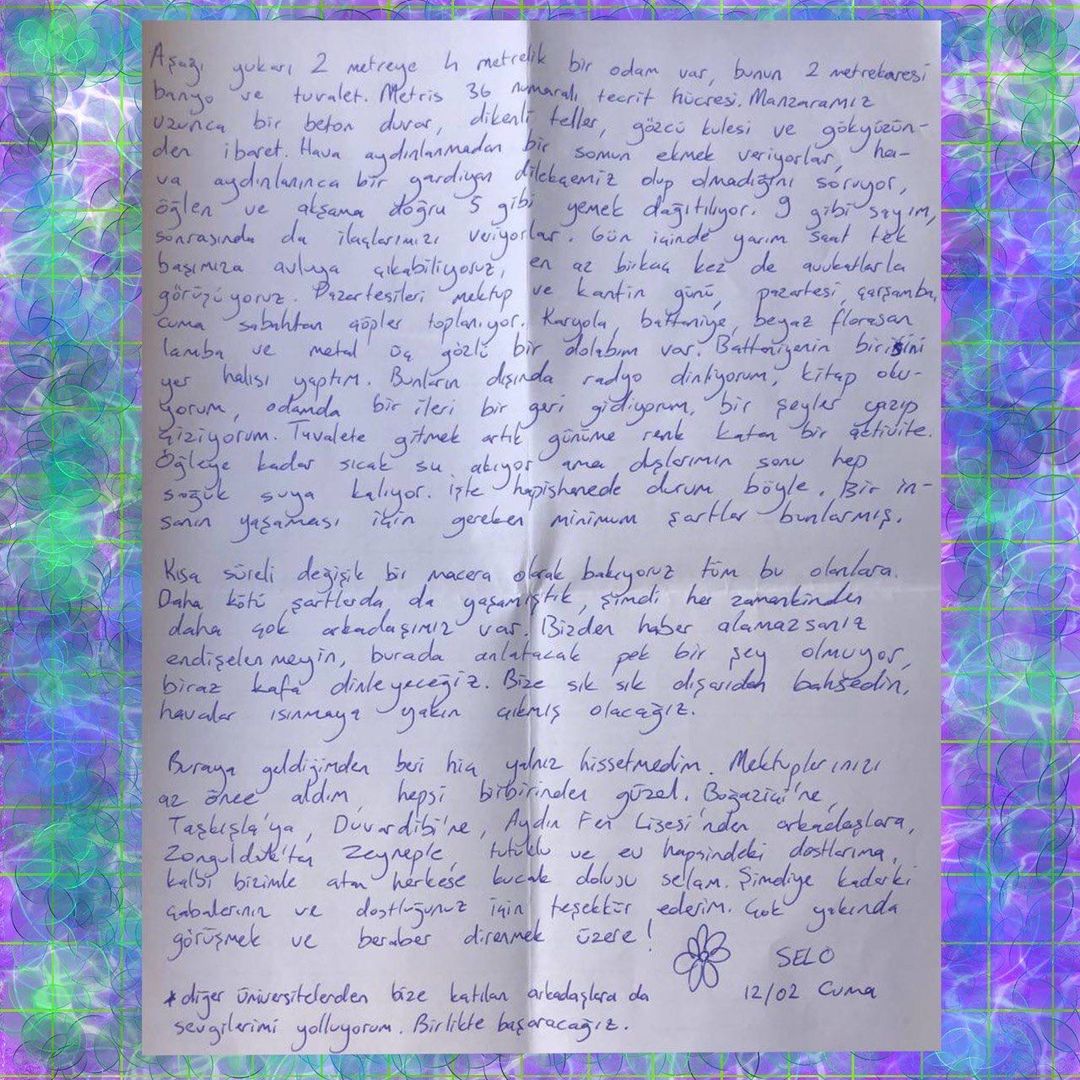 Aşağı yukarı 2 metreye 4 metrelik bir odam var, bunun 2 metrekaresi
banyo ve tuvalet. Metris 36 numaralı tecrit hücresi. Manzaramız
uzunca bir beton duvar, dikenli teller, gözcü kulesi ve gökyüzün-
den ibaret. Hava aydınlanmadan bir somun ekmek veriyorlar, ha-
va aydınlanınca bir gardiyan dilekçemiz olup olmadığını soruyor,
öğlen ve akşama doğru 5 gibi yemek dağıtılıyor. 9 gibi sayım,
sonrasında da ilaçlarımızı veriyorlar. Gün içinde yarım saat tek
başımıza avluya çıkabiliyoruz, en az birkaç kez de avukatlarla
görüşüyoruz. Pazartesileri mektup ve kantin günü, pazartesi, çarşamba,
cuma sabahtan çöpler toplanıyor. Karyola, battaniye, beyaz florasan
lamba ve metal üç gözlü bir dolabım var. Battaniyenin birisini
yer halısı yaptım. Bunların dışında radyo dinliyorum, kitap oku-
yorum, odamda bir ileri bir geri gidiyorum, bir şeyler yazıp
çiziyorum. Tuvalete gitmek artık günüme renk katan bir aktivite.
Öğleye kadar sıcak su akıyor ama duşlarımın sonu hep
soğuk suya kalıyor. İşte hapishanede durum böyle. Bir in-
sanın yaşaması için gereken minimum şartlar bunlarmış.
Kısa süreli değişik bir macera olarak bakıyoruz tüm bu olanlara.
Daha kötü şartlarda da yaşamıştık, şimdi her zamankinden
daha çok arkadaşımız var. Bizden haber alamazsanız
endişelenmeyin, burada anlatacak pek bir şey olmuyor,
biraz kafa dinleyeceğiz. Bize sık sık dışarıdan bahsedin,
havalar ısınmaya yakın çıkmış olacağız.
Buraya geldiğimden beri hiç yalnız hissetmedim. Mektuplarınızı
az önce aldım, hepsi birbirinden güzel. Boğaziçi'ne,
Taşkışla'ya, Duvardibi'ne, Aydın Fen Lisesi'nden arkadaşlara,
Zonguldak'tan Zeyneple, tutuklu ve ev hapsindeki dostlarıma,
kalbi bizimle atan herkese kucak dolusu selam. Şimdiye kadarki
çabalarınız ve dostluğunuz için teşekkür ederim. Çok yakında
görüşmek ve beraber direnmek üzere!
SELO
12/02 Cuma
* diğer üniversitelerden bize katılan arkadaşlara da
sevgilerimi yolluyorum. Birlikte başaracağız.